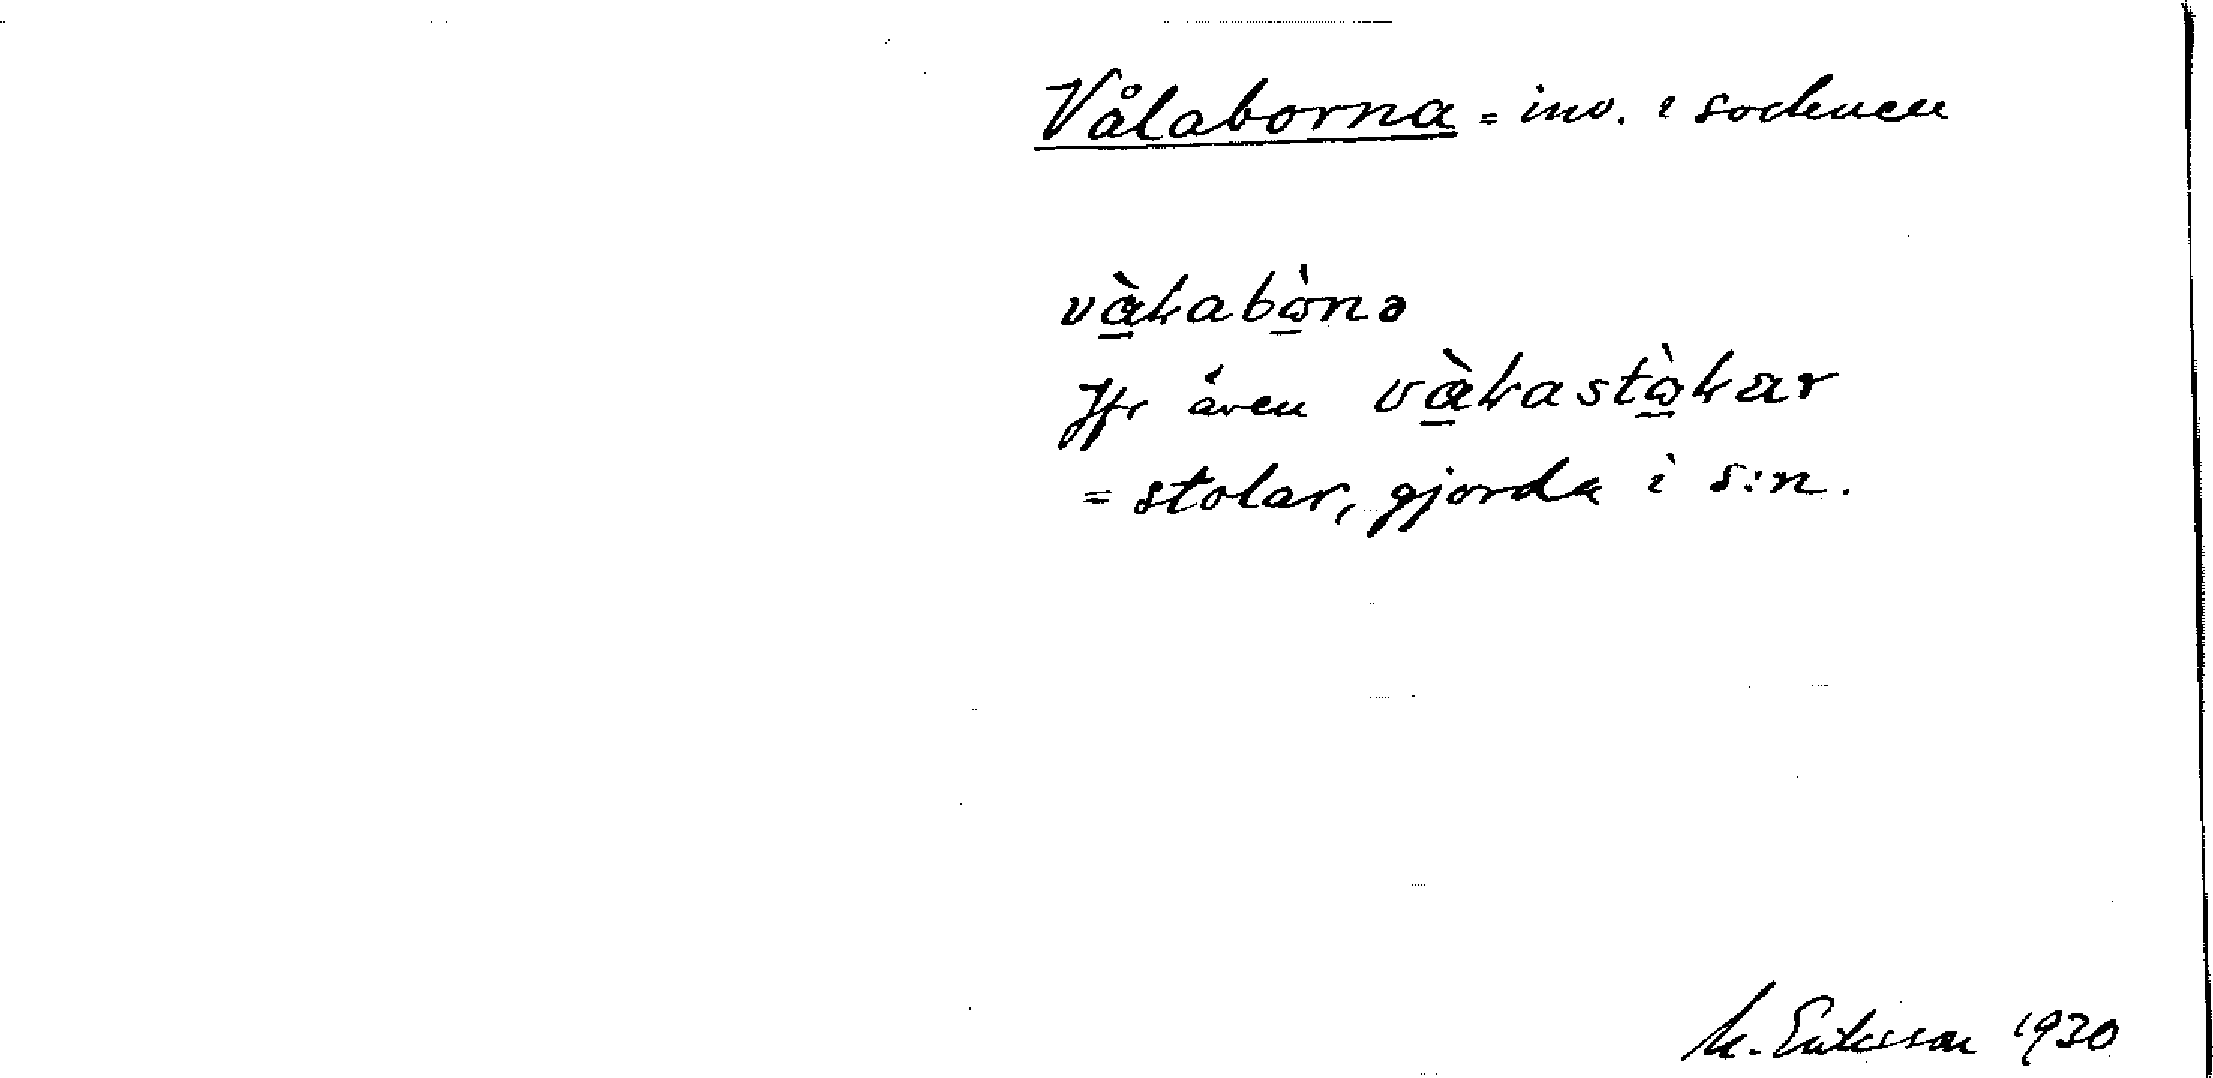 Vålaborna = inv. i socknen
vàɫabὼnə
Jfr även vàɫastὼɫar
= stolar, gjorda i s:n.
M. Eriksson 1930